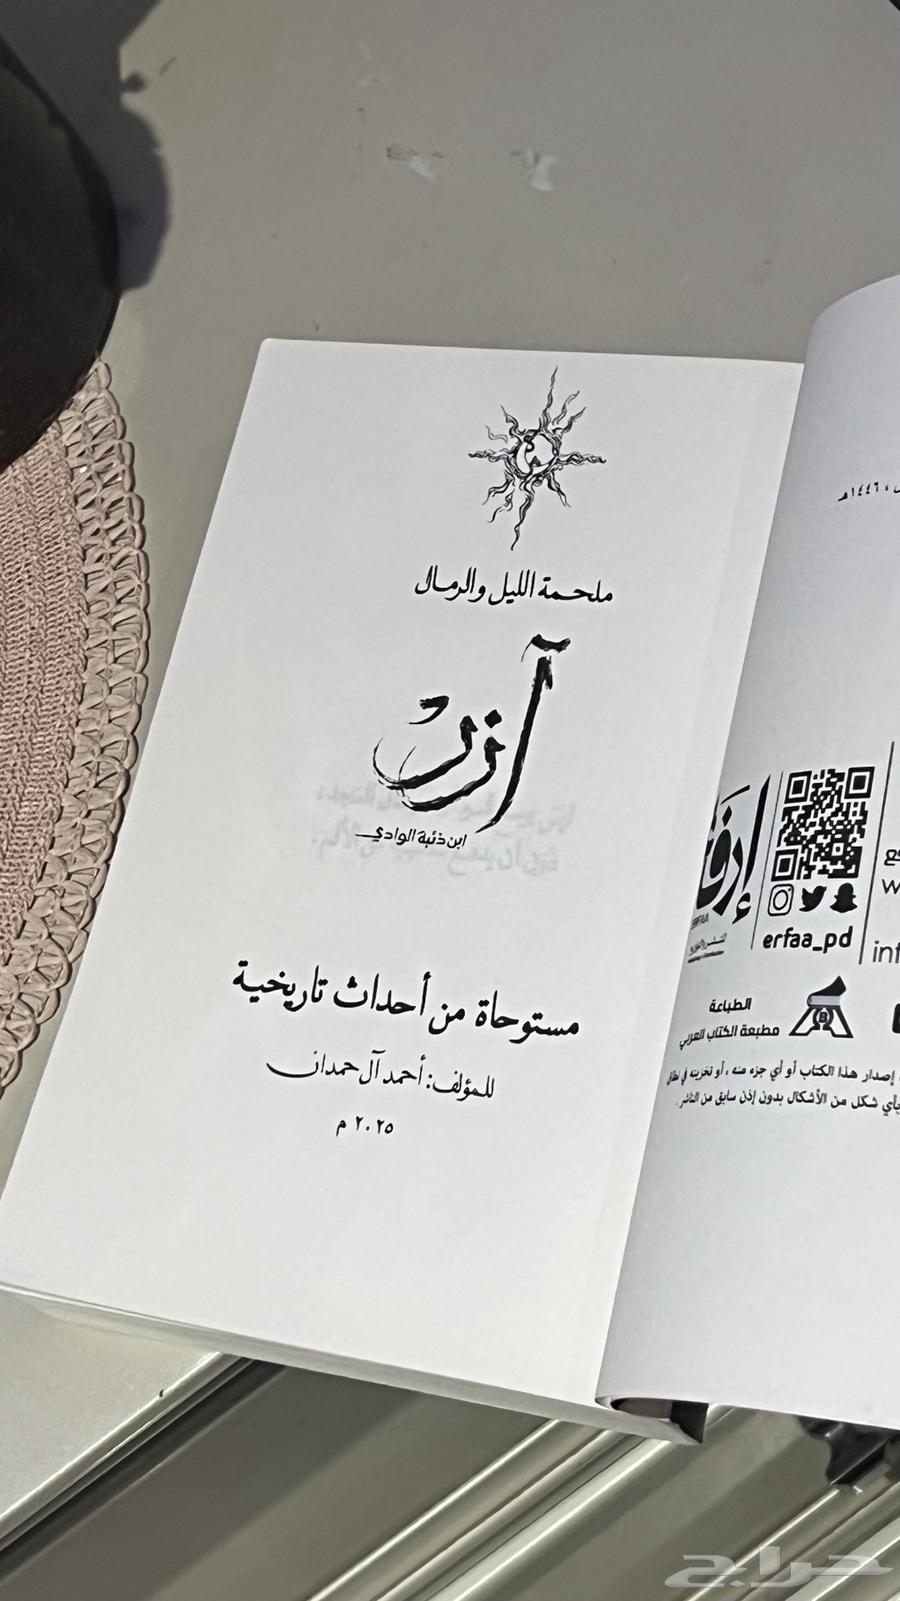 ملحمة الليل والرمال
آزر
ابن ذئبة الوادي
مستوحاة من أحداث تاريخية
للمؤلف: أحمد آل حمدان
٢٠٢٥ م
١٤٤٦هـ
إرفاء
erfaa_pd
inf
الطباعة
مطبعة الكتاب العربي
إصدار هذا الكتاب أو أي جزء منه، أو تخزينه في نطاق
بأي شكل من الأشكال بدون إذن سابق من الناشر.
حراج